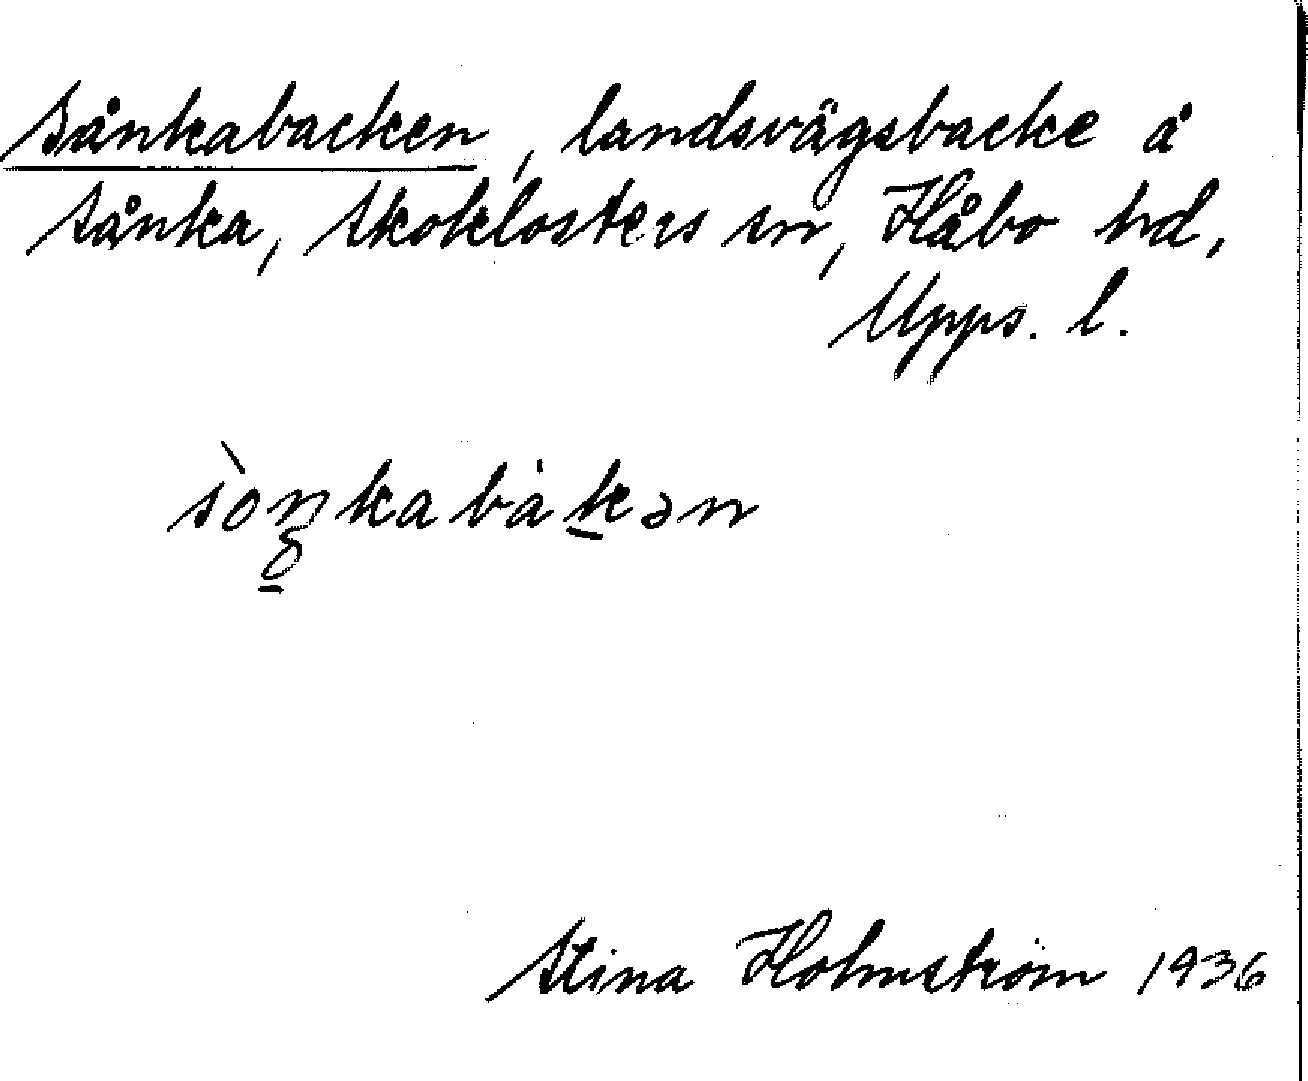 Sånkabacken, landsvägsbacke å
Sånka, Skoklosters sn, Håbo hd,
Upps. l.
sòŋkabàkən
Stina Holmström 1936